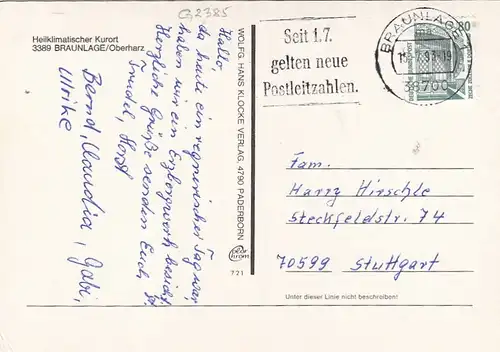 G2385
Heilklimatischer Kurort
3389 BRAUNLAGE/Oberharz
Hallo,
da heute ein regnerischer Tag war
haben wir ein Erzbergwerk besicht.
Herzliche Grüße senden Euch
Trudel, Horst
Bernd, Claudia, Gabi,
Ulrike
WOLFG. HANS KLOCKE VERLAG, 4790 PADERBORN
721
Seit 1.7.
gelten neue
Postleitzahlen.
BRAUNLAGE 1
38700
80
DEUTSCHE BUNDESPOST
Fam.
Harry Hirschle
Steckfeldstr. 74
70599 Stuttgart
Unter dieser Linie nicht beschreiben!